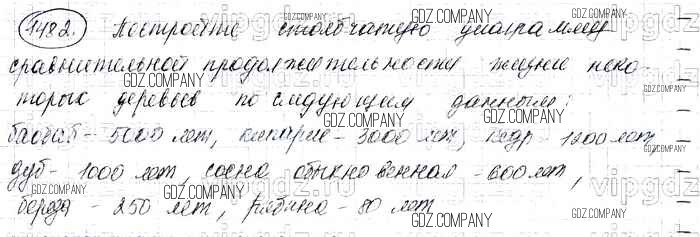 1482. Постройте столбчатую диаграмму
сравнительной продолжительности жизни неко-
торых деревьев по следующим данным:
баобаб - 5000 лет, кипарис - 3000 лет, кедр - 1200 лет,
дуб - 1000 лет, сосна обыкновенная - 600 лет,
береза - 250 лет, рябина - 80 лет
GDZ.COMPANY
vipgdz
vipgdz.ru